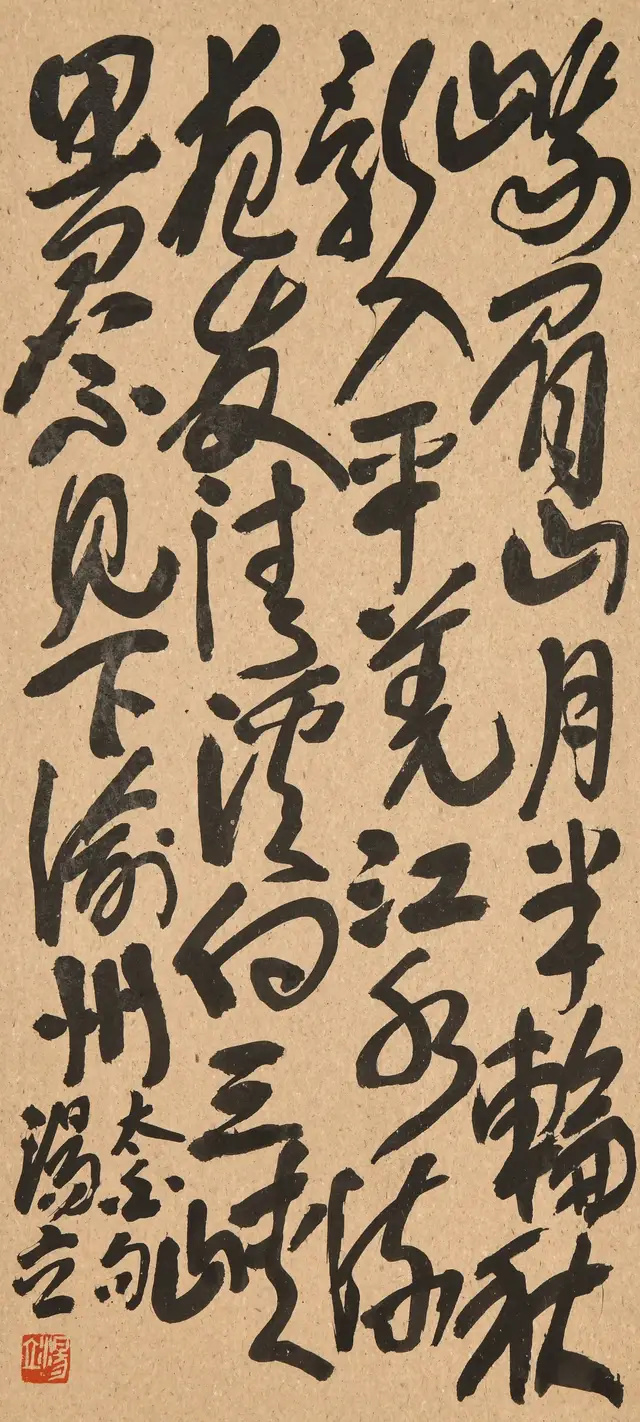 峨眉山月半輪秋
影入平羌江水流
夜發清溪向三峽
思君不見下渝州
太白句
湯立
湯立